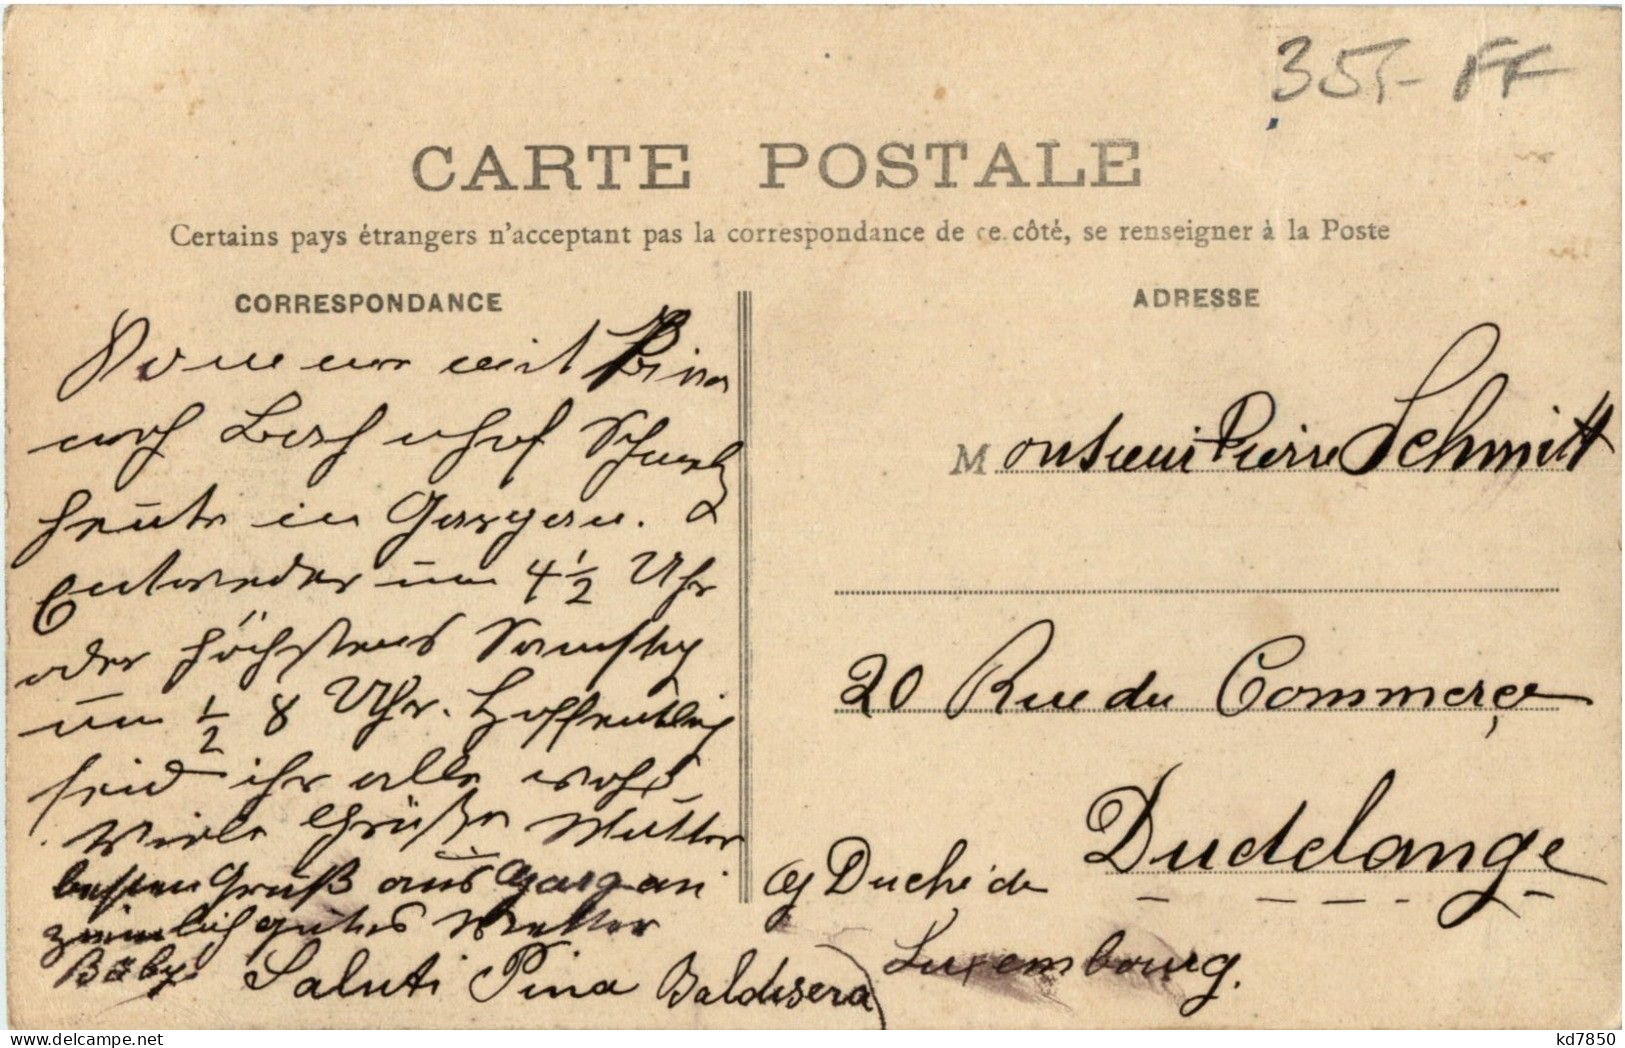 35,- FF
CARTE POSTALE
Certains pays étrangers n'acceptant pas la correspondance de ce côté, se renseigner à la Poste
CORRESPONDANCE
ADRESSE
Kommen mit Pina
nach
heute in Gargan.
Entweder um 4 1/2 Uhr
oder höchstens Samstag
um 1/2 8 Uhr. Hoffentlich
seid ihr alle wohl.
Viele Grüße Mutter
besten Gruß aus Gargan
ziemlich gutes Wetter
Baby.
Saluti Pina Baldisera
Monsieur Pierre Schmitt
20 Rue du Commerçe
Dudelange
Gd Duché de
Luxembourg.
kd7850